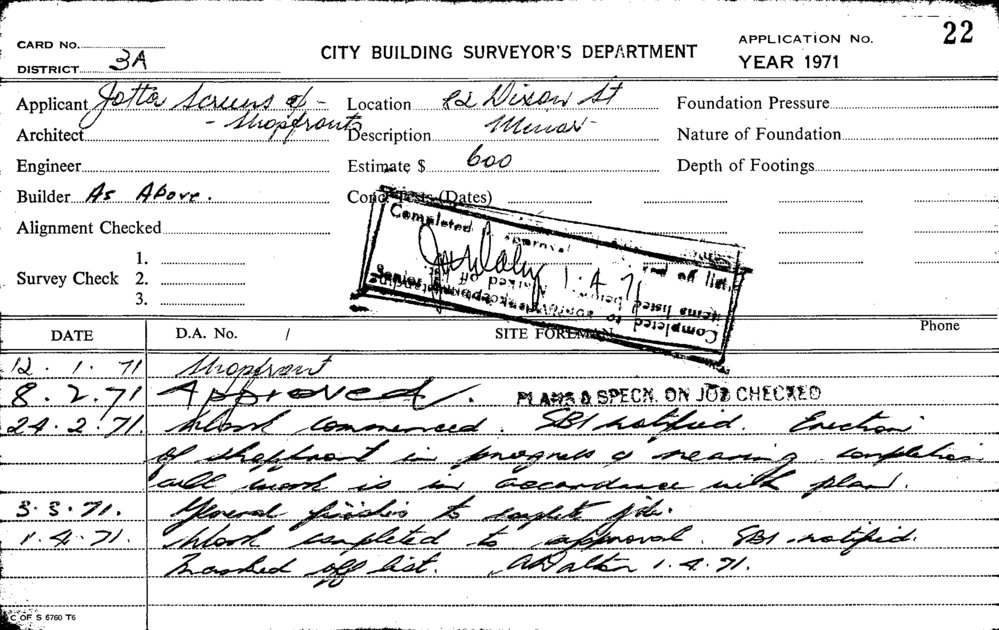 CARD No.
DISTRICT 3A
CITY BUILDING SURVEYOR'S DEPARTMENT
APPLICATION No. 22
YEAR 1971
Applicant Jotta Screens &
- Shopfronts
Location 82 Dixon St
Foundation Pressure
Architect
Description
Nature of Foundation
Engineer
Estimate $ 600
Depth of Footings
Builder As Above.
Conc. Tests (Dates)
Alignment Checked
Survey Check 1.
2.
3.
Completed approval
1.4.71
Completed to
items listed below
DATE
D.A. No. /
SITE FOREMAN
Phone
12.1.71 Shopfront
8.2.71 Approved. PLANS & SPECN. ON JOB CHECKED
24.2.71. Work commenced. SBI notified. Erection
of shopfront in progress & nearing completion
all work is in accordance with plan.
3.3.71. General finishes to complete job.
1.4.71. Work completed to approval. SBI notified.
Marked off list. A Dalton 1.4.71.
C OF S 6760 T6